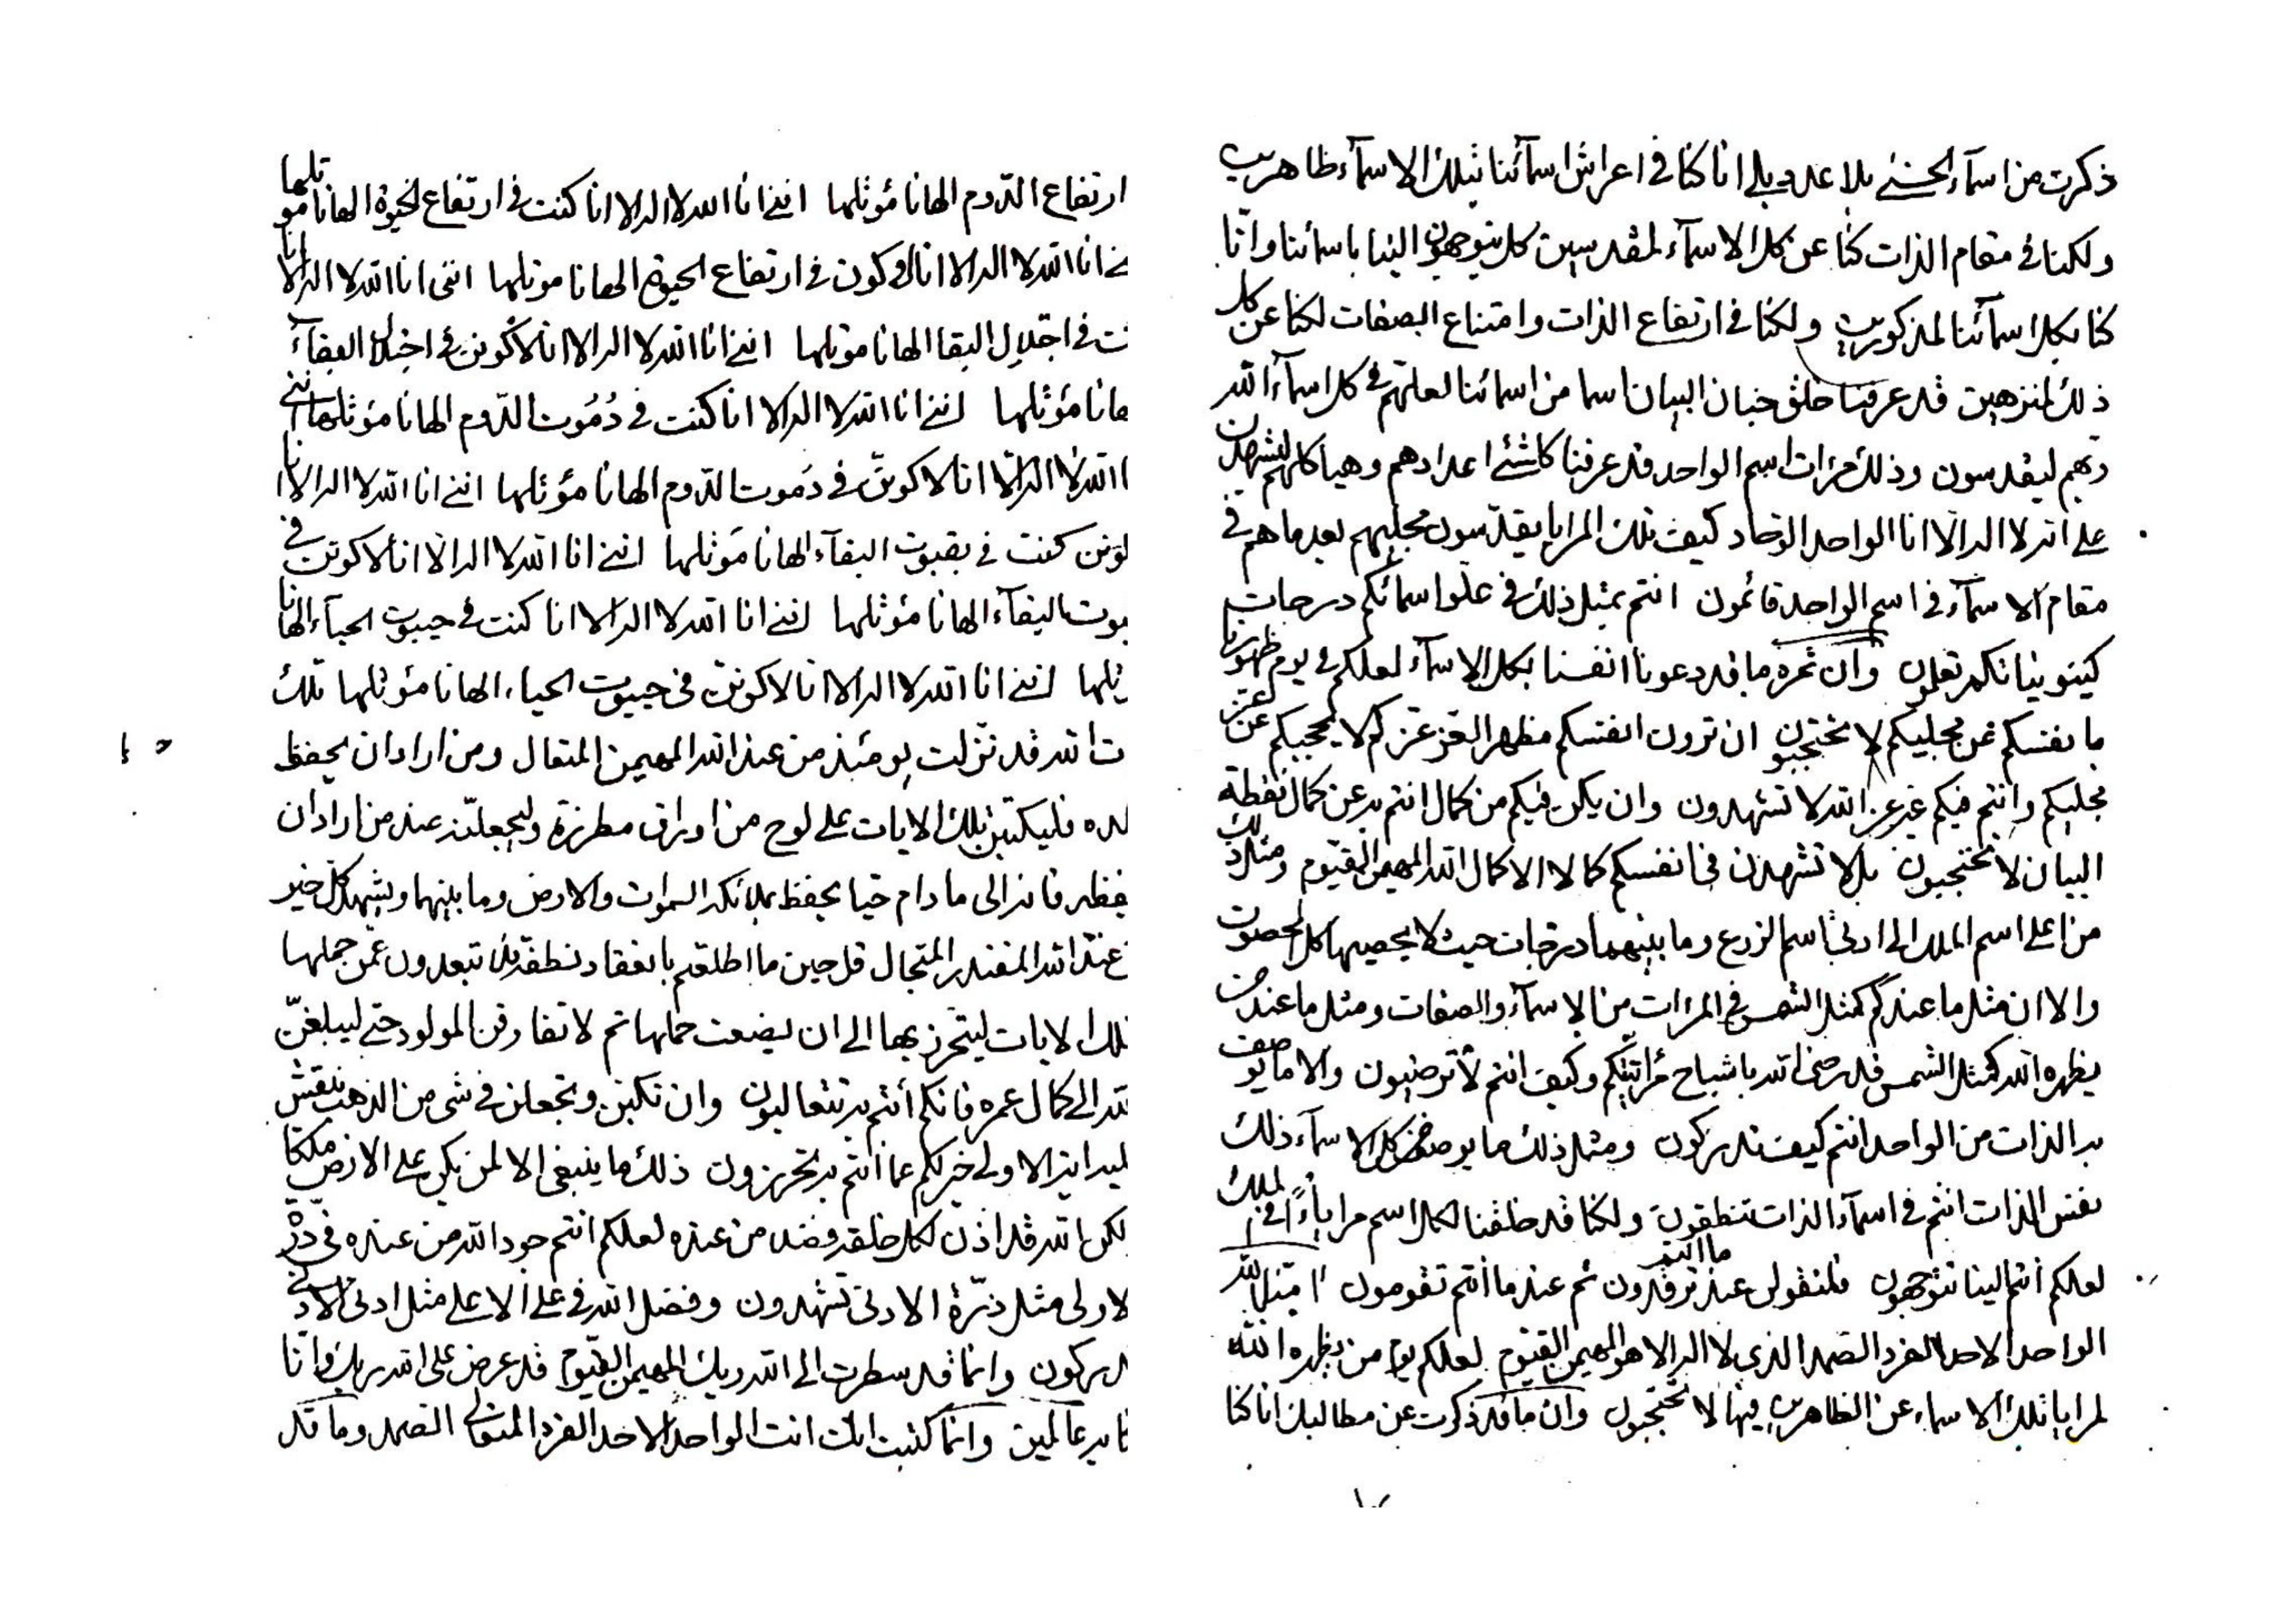 ذكرت من اسمآء الحسنى بلا عدد بلى انا كنا فى اعراش اسمآئنا بتلك الاسمآء ظاهرين
ولكنا فى مقام الذات كنا عن كل الاسمآء لمقدسين كل يتوجهون الينا باسمائنا وانا
كنا بكل اسمآئنا لمذكورين ولكنا فى ارتفاع الذات وامتناع الصفات لكنا عن كل
ذلك لمنزهين قد عرفنا خلق البيان اسما من اسمائنا لعلهم فى كل اسمآء الله
ربهم ليقدسون وذلك مرات اسم الواحد قد عرفنا كلشئ اعدادهم وهياكلهم ليشهدن
على انه لا اله الا انا الواحد الوحاد كيف تلك المرايا يقدسون مجليهم بعد ما هم فى
مقام الاسمآء فى اسم الواحد قائمون انتم بمثل ذلك فى علو اسمائكم درجات
كينونياتكم تعلمون وان ثمره ما قد دعونا انفسنا بكل الاسمآء لعلكم فى يوم ظهورنا
بانفسكم عن مجليكم لا تحتجبون ان ترون انفسكم مظهر العز عزكم لا يحجبكم عن عز
مجليكم وانتم فيكم غير عز الله لا تشهدون وان يكن فيكم من كمال انتم به عن كمال نقطة
البيان لا تحتجبون بل لا تشهدن فى انفسكم كمالا الا كمال الله المهيمن القيوم ومثل ذلك
من اعلى اسم الملك الى ادنى اسم الزرع وما بينهما درجات حيث لا يحصيها كل المحصون
والا ان مثل ما عندكم كمثل الشمس فى المرات من الاسمآء والصفات ومثل ما عند من
يظهره الله كمثل الشمس قد رضى الله باشباح مراتيكم وكيف انتم لا ترضيون والا ما يوصف
به الذات من الواحد انتم كيف تدركون ومثل ذلك ما يوصف كل الاسمآء ذلك
نفس الذات انتم فى اسمآء الذات تنطقون ولكنا قد خلقنا لكل اسم مراياء فى الملك
لعلكم انتم الينا تتوجهون فلتقولن عند ما انتم ترقدون ثم عند ما انتم تقومون الله
الواحد الاحد الفرد الصمد الذى لا اله الا هو المهيمن القيوم لعلكم يوم من يظهره الله
لمرايا تلك الاسماء عن الظاهرين فيها لا تحتجبون وان ما قد ذكرت عن مطالبك انا كنا
ارتفاع الدوم الها نا مؤتلها اننى انا الله لا اله الا انا كنت فى ارتفاع الحيوة الها نا مؤتلها
نى انا الله لا اله الا انا لاكونن فى ارتفاع الحيوة الها نا مؤتلها اننى انا الله لا اله الا انا
نت فى اجلال البقا الها نا مؤتلها اننى انا الله لا اله الا انا لاكونن فى اجلال البقآء
ها نا مؤتلها اننى انا الله لا اله الا انا كنت فى دموت الدوم الها نا مؤتلها اننى
ا الله لا اله الا انا لاكونن فى دموت الدوم الها نا مؤتلها اننى انا الله لا اله الا انا
كنت فى بقيوت البقآء الها نا مؤتلها اننى انا الله لا اله الا انا لاكونن فى
يوت البقآء الها نا مؤتلها اننى انا الله لا اله الا انا كنت فى حييوت الحيآء الها نا
تلها اننى انا الله لا اله الا انا لاكونن فى حييوت الحياء الها نا مؤتلها تلك
ت الله قد نزلت يومئذ من عند الله المهيمن المتعال ومن اراد ان يحفظ
لده فليكتبن تلك الايات على لوح من اوراق مطرزة وليجعلنه عند من اراد ان
يفظه فانه الى ما دام حيا يحفظ بملائكة السموات والارض وما بينهما ويشهد كل خير
عند الله المقتدر المتجال قل حين ما اطلقتم بانعقاد نطفة تبعدون عمن حملها
تلك الايات ليتحرز بها الى ان يضعت حملها ثم لا تفارقن المولود حتى ليبلغن
الى كمال عمره فانكم انتم به تتعاليون وان تكتبن وتجعلن فى شئ من الذهب بنقش
خير لكم عما انتم به تحرزون ذلك ما ينبغى الا لمن يكن على الارض ملكا
لكن الله قد اذن لكل خلقه فضلا من عنده لعلكم انتم جود الله من عنده فى ذر
لاولى مثل ذرة الادنى تشهدون وفضل الله فى على الاعلى مثل ادنى الادنى
دركون وانما قد سطرت الى الله ربك المهيمن القيوم قد عرض على الله ربك وانا
نا به عالمين وانما كتبت انك انت الواحد الاحد الفرد المتعالى الصمد وما قد